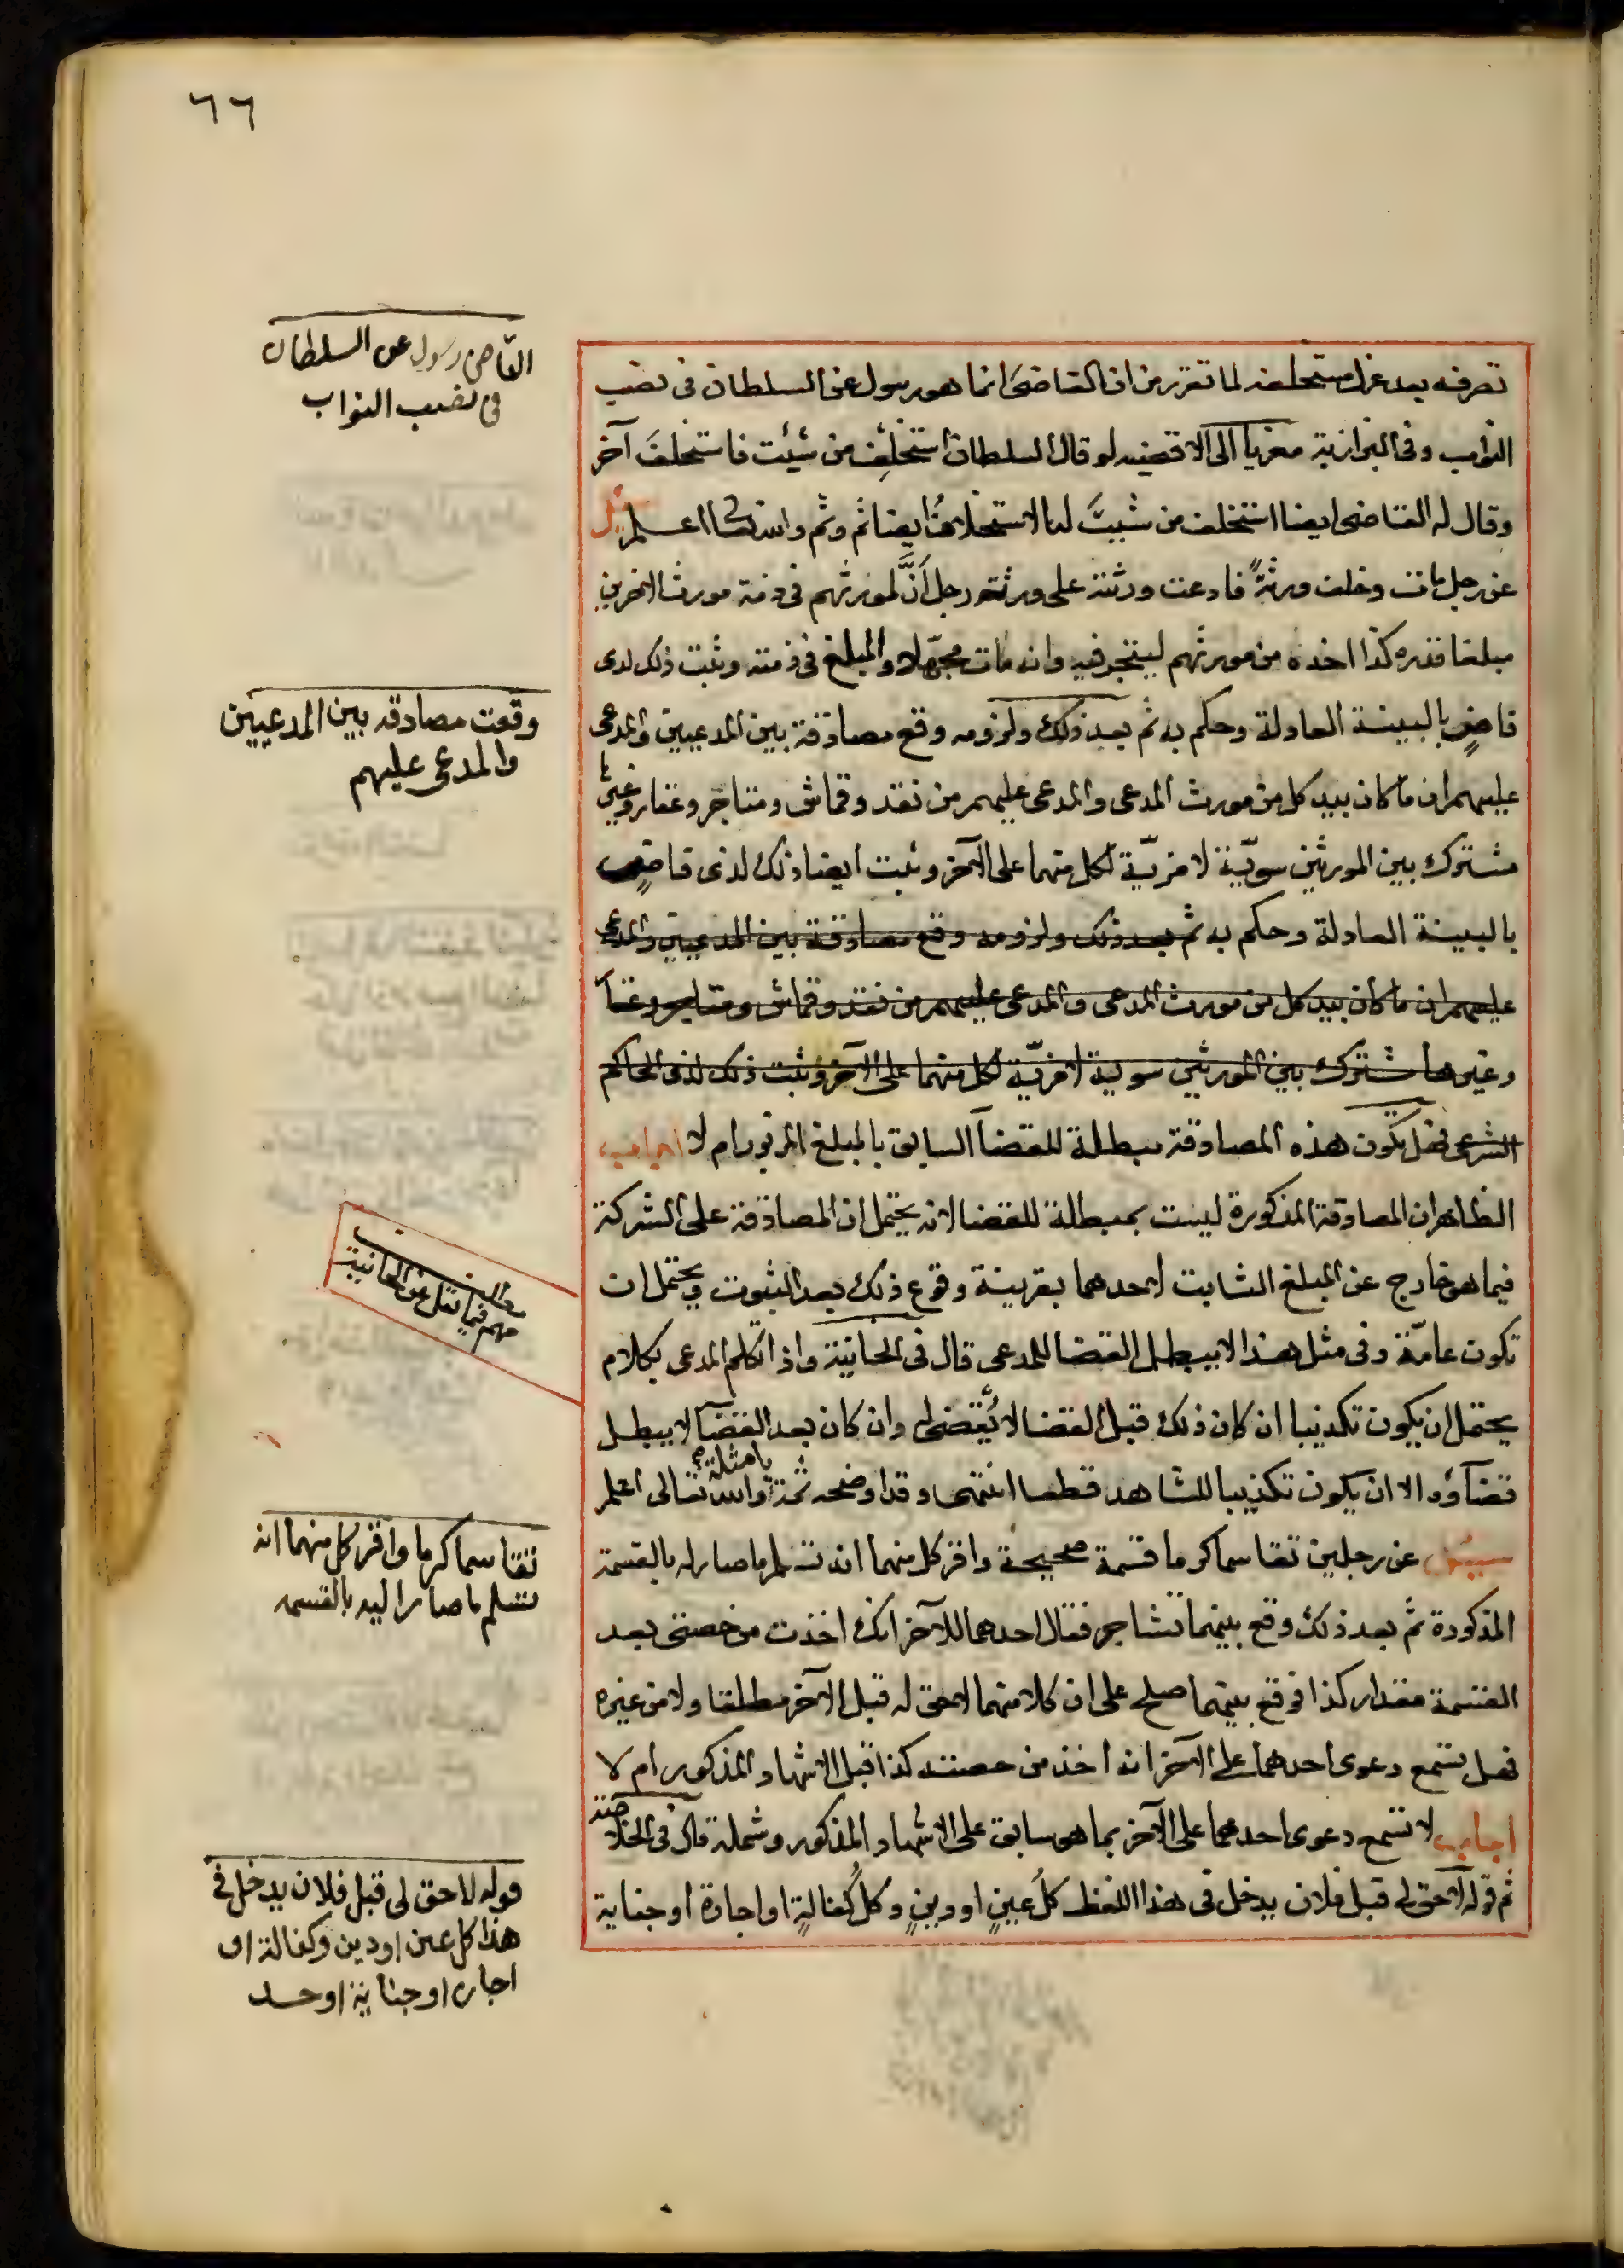 ٦٦
تصرفه بعد عزل مستخلفه لما تقرر من ان القاضى انما هو رسول عن السلطان فى نصب
النواب وفى البزازية معزيا الى الاقضيه لو قال السلطان استخلف من شئت فاستخلف آخر
وقال له القاضى ايضا استخلف من شيت له الاستخلاف ايضا ثم وثم والله تعالى اعلم سئل
عن رجل مات وخلف ورثة فادعت ورثته على ورثة رجل أن لمورثهم فى ذمة مورث الاخرين
مبلغا قدره كذا اخذه من مورثهم ليتجر فيه وانه مات مجهلا والمبلغ فى ذمته وثبت ذلك لدى
قاض بالبينة العادلة وحكم به ثم بعد ذلك ولزومه وقع مصادقة بين المدعيين والمدعى
عليهم ان ما كان بيد كل من مورث المدعى والمدعى عليهم من نقد وقماش ومتاجر وعقار وغيرها
مشترك بين المورثين سوية لا مزية لكل منهما على الآخر وثبت ايضا ذلك لدى قاض
بالبينة العادلة وحكم به ثم بعد ذلك ولزومه وقع مصادقة بين المدعيين والمدعى
عليهم ان ما كان بيد كل من مورث المدعى والمدعى عليهم من نقد وقماش ومتاجر وعقار
وغيرها مشترك بين المورثين سوية لا مزية لكل منهما على الآخر وثبت ذلك لدى الحاكم
الشرعى فهل تكون هذه المصادقة مبطلة للقضآ السابق بالمبلغ المزبور ام لا اجاب
الظاهر ان المصادقة المذكورة ليست بمبطلة للقضا لانه يحتمل ان المصادقة على الشركة
فيما هو خارج عن المبلغ الثابت لاحدهما بقرينة وقوع ذلك بعد الثبوت ويحتمل ان
تكون عامّة وفى مثل هذا لا يبطل القضا للمدعى قال فى الخانية واذا تكلم المدعى بكلام
يحتمل ان يكون تكذيبا ان كان ذلك قبل القضا لا يُقضى له وان كان بعد القضآ لا يبطل
قضآؤه الا ان يكون تكذيبا للشاهد قطعا انتهى وقد اوضحه ثمة بامثلة والله تعالى اعلم
سئل عن رجلين تقاسما كرما قسمة صحيحة واقر كل منهما انه تسلم ما صار له بالقسمة
المذكورة ثم بعد ذلك وقع بينهما تشاجر فقال احدهما للآخر انك اخذت من حصتى بعد
القسمة مقدار كذا فوقع بينهما صلح على ان كلا منهما لا حق له قبل الآخر مطلقا ولا من غيره
فهل تسمع دعوى احدهما على الآخر انه اخذ من حصته كذا قبل الاشهاد المذكور ام لا
اجاب لا تسمع دعوى احدهما على الآخر بما هو سابق على الاشهاد المذكور وشمله قال فى الخلاصة
ثم قوله لا حق لى قبل فلان يدخل فى هذا اللفظ كل عين او دين وكل كفالة او اجارة او جناية
القاضى رسول عن السلطان
فى نصب النواب
وقعت مصادقه بين المدعيين
والمدعى عليهم
مطلب
مهم فيما نقل عن الخانية
تقاسما كرما واقر كل منهما انه
تسلم ما صار اليه بالقسمه
قوله لا حق لى قبل فلان يدخل فى
هذا كل عين او دين وكفالة او
اجارة او جناية او حد